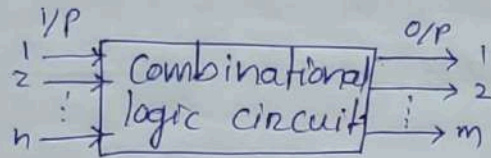 I/P
O/P
1
2
⋮
n
Combinational
logic circuit
1
2
⋮
m